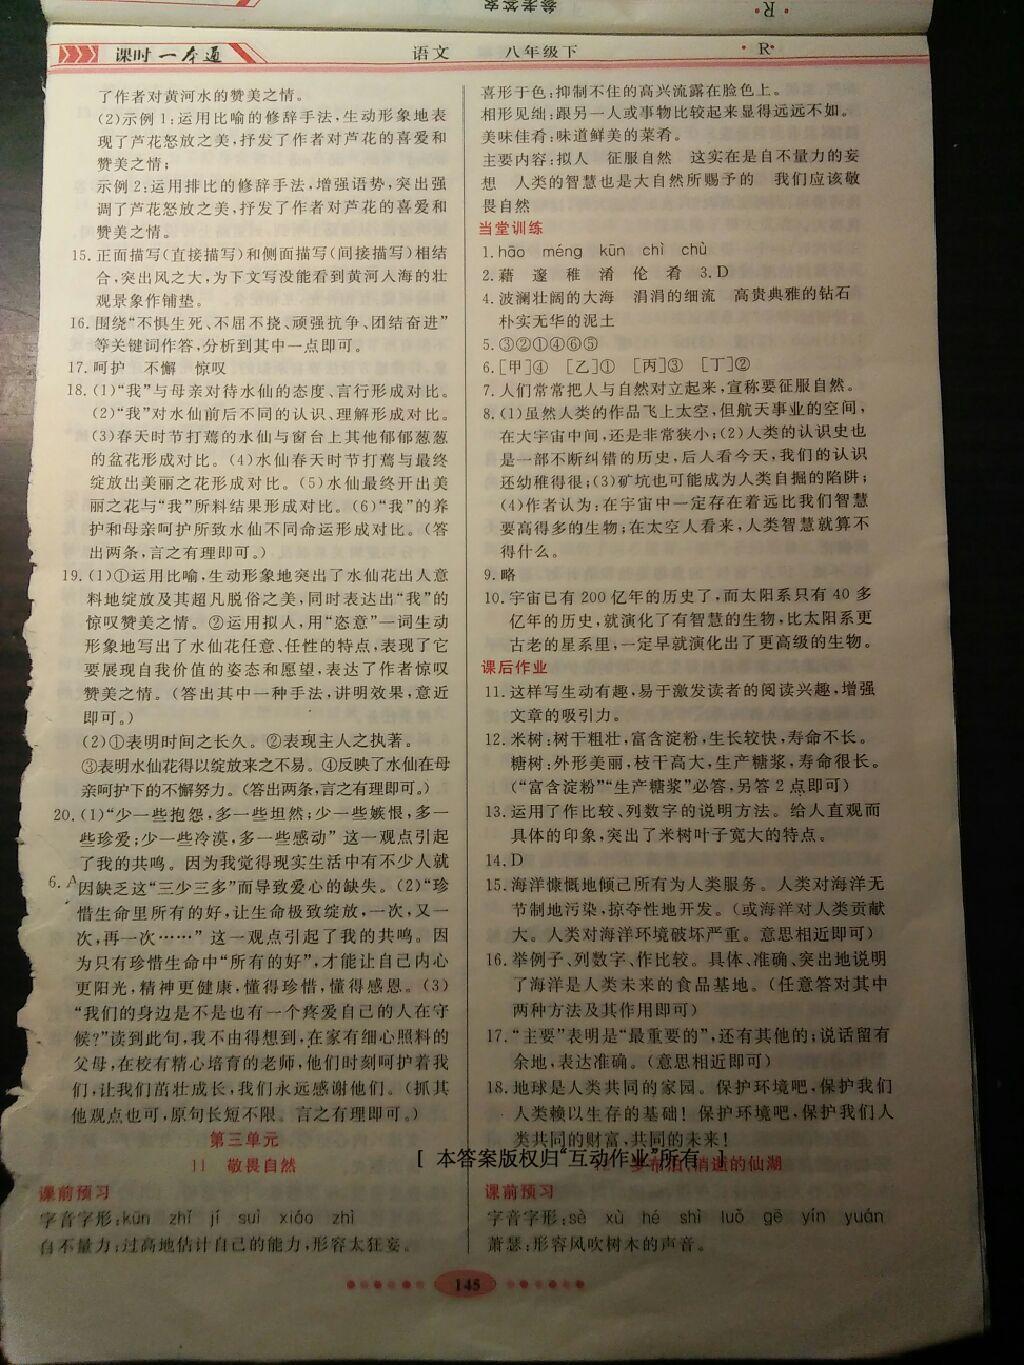 参考答案
R
课时一本通
语文 八年级下
R
了作者对黄河水的赞美之情。
(2)示例1:运用比喻的修辞手法,生动形象地表
现了芦花怒放之美,抒发了作者对芦花的喜爱和
赞美之情;
示例2:运用排比的修辞手法,增强语势,突出强
调了芦花怒放之美,抒发了作者对芦花的喜爱和
赞美之情。
15.正面描写(直接描写)和侧面描写(间接描写)相结
合,突出风之大,为下文写没能看到黄河入海的壮
观景象作铺垫。
16.围绕“不惧生死、不屈不挠、顽强抗争、团结奋进”
等关键词作答,分析到其中一点即可。
17.呵护 不懈 惊叹
18.(1)“我”与母亲对待水仙的态度、言行形成对比。
(2)“我”对水仙前后不同的认识、理解形成对比。
(3)春天时节打蔫的水仙与窗台上其他郁郁葱葱
的盆花形成对比。(4)水仙春天时节打蔫与最终
绽放出美丽之花形成对比。(5)水仙最终开出美
丽之花与“我”所料结果形成对比。(6)“我”的养
护和母亲呵护所致水仙不同命运形成对比。(答
出两条,言之有理即可。)
19.(1)①运用比喻,生动形象地突出了水仙花出人意
料地绽放及其超凡脱俗之美,同时表达出“我”的
惊叹赞美之情。②运用拟人,用“恣意”一词生动
形象地写出了水仙花任意、任性的特点,表现了它
要展现自我价值的姿态和愿望,表达了作者惊叹
赞美之情。(答出其中一种手法,讲明效果,意近
即可。)
(2)①表明时间之长久。②表现主人之执著。
③表明水仙花得以绽放来之不易。④反映了水仙在母
亲呵护下的不懈努力。(答出两条,言之有理即可。)
20.(1)“少一些抱怨,多一些坦然;少一些嫉恨,多一
些珍爱;少一些冷漠,多一些感动”这一观点引起
了我的共鸣。因为我觉得现实生活中有不少人就
6. A
因缺乏这“三少三多”而导致爱心的缺失。(2)“珍
惜生命里所有的好,让生命极致绽放,一次,又一
次,再一次……”这一观点引起了我的共鸣。因
为只有珍惜生命中“所有的好”,才能让自己内心
更阳光,精神更健康,懂得珍惜,懂得感恩。(3)
“我们的身边是不是也有一个疼爱自己的人在守
候?”读到此句,我不由得想到,在家有细心照料的
父母,在校有精心培育的老师,他们时刻呵护着我
们,让我们茁壮成长,我们永远感谢他们。(抓其
他观点也可,原句长短不限。言之有理即可。)
第三单元
11 敬畏自然
课前预习
字音字形:kūn zhǐ jí suì xiáo zhì
自不量力:过高地估计自己的能力,形容太狂妄。
喜形于色:抑制不住的高兴流露在脸色上。
相形见绌:跟另一人或事物比较起来显得远远不如。
美味佳肴:味道鲜美的菜肴。
主要内容:拟人 征服自然 这实在是自不量力的妄
想 人类的智慧也是大自然所赐予的 我们应该敬
畏自然
当堂训练
1.hāo méng kūn chì chù
2.藉 邃 稚 淆 伦 肴 3.D
4.波澜壮阔的大海 涓涓的细流 高贵典雅的钻石
朴实无华的泥土
5.③②①④⑥⑤
6.[甲]④ [乙]① [丙]③ [丁]②
7.人们常常把人与自然对立起来,宣称要征服自然。
8.(1)虽然人类的作品飞上太空,但航天事业的空间,
在大宇宙中间,还是非常狭小;(2)人类的认识史也
是一部不断纠错的历史,后人看今天,我们的认识
还幼稚得很;(3)矿坑也可能成为人类自掘的陷阱;
(4)作者认为:在宇宙中一定存在着远比我们智慧
要高得多的生物;在太空人看来,人类智慧就算不
得什么。
9.略
10.宇宙已有200亿年的历史了,而太阳系只有40多
亿年的历史,就演化了有智慧的生物,比太阳系更
古老的星系里,一定早就演化出了更高级的生物。
课后作业
11.这样写生动有趣,易于激发读者的阅读兴趣,增强
文章的吸引力。
12.米树:树干粗壮,富含淀粉,生长较快,寿命不长。
糖树:外形美丽,枝干高大,生产糖浆,寿命很长。
(“富含淀粉”“生产糖浆”必答,另答2点即可)
13.运用了作比较、列数字的说明方法。给人直观而
具体的印象,突出了米树叶子宽大的特点。
14.D
15.海洋慷慨地倾己所有为人类服务。人类对海洋无
节制地污染,掠夺性地开发。(或海洋对人类贡献
大。人类对海洋环境破坏严重。意思相近即可)
16.举例子、列数字、作比较。具体、准确、突出地说明
了海洋是人类未来的食品基地。(任意答对其中
两种方法及其作用即可)
17.“主要”表明是“最重要的”,还有其他的;说话留有
余地,表达准确。(意思相近即可)
18.地球是人类共同的家园。保护环境吧,保护我们
人类赖以生存的基础!保护环境吧,保护我们人
类共同的财富,共同的未来!
[ 本答案版权归“互动作业”所有 ]
消逝的仙湖
课前预习
字音字形:sè xù hé shì luǒ gē yín yuán
萧瑟:形容风吹树木的声音。
145